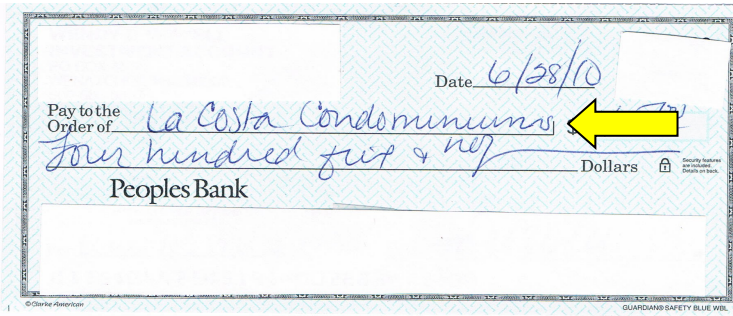 Date 6/28/10
Pay to the
Order of La Costa Condominiums $
Four hundred five & no/ Dollars
Security features
are included.
Details on back.
Peoples Bank
© Clarke American
GUARDIAN® SAFETY BLUE WBL